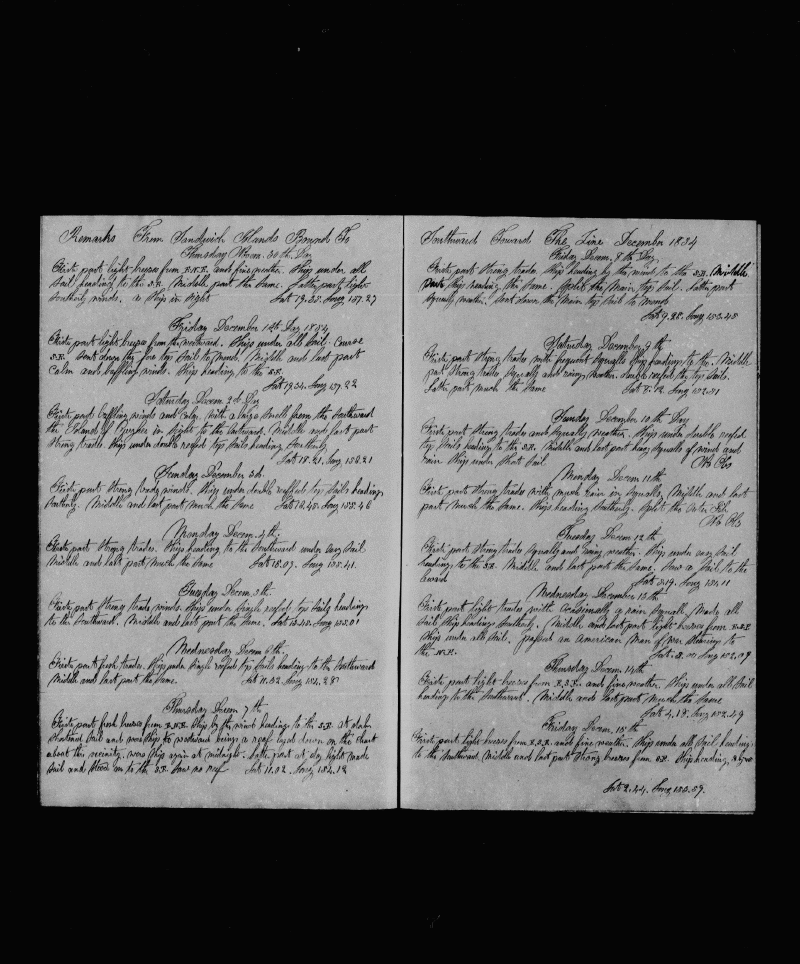 Remarks From Sandwich Islands Bound To
Thursday Novem. 30th Day
First part light breeses from N.N.E. and fine weather. Ship under all
sail heading to the S.E. Middle part the same. Latter part light
southerly winds. a Ship in sight Lat 19.35. Long 157.27
Friday December 1st Day 1854
First part light breeses from the westward. Ship under all sail. Course
S.E. Sent down the fore top sail to mend. Middle and last part
calm and baffling winds. Ship heading to the S.E.
Lat 19.34. Long 157.22
Saturday Decem 2d Day
First part baffling winds and calm, with a large swell from the Southward
the Island of in sight to the Middle and last part
strong trades. Ship under double reefed top sails heading Southerly
Lat 18.41. Long 156.21
Sunday December 3d.
First part strong trade winds. Ship under double reeffed top sails heading
Southerly. Middle and last part much the same Lat 18.45. Long 155.46
Monday Decem. 4th.
First part strong trades. Ship heading to the Southward under easy sail
Middle and last part much the same Lat 15.09. Long 155.41.
Tuesday Decem. 5th.
First part strong trade winds. Ship under single reefed top sails heading
to the Southward. Middle and last part the same. Lat 13.45. Long 155.01
Wednesday Decem 6th.
First part fresh trades. Ship under single reefed top sails heading to the Southward
Middle and last part the same Lat 11.52. Long 154.28
Thursday Decem 7th
First part fresh breeses from E.N.E. Ship by the wind heading to the S.E. at dark
shortened sail and wore ship to westward being a reef layed down on the chart
about this vicinity. wore ship again at midnight. Latter part at day light made
sail and stood on to the S.E. Saw no reef Lat 11.02. Long 154.12
Southward Toward The Line December 1854
Friday Decem. 8th Day.
First part strong trades Ship heading by the wind to the S.E. Middle
part Ship heading the same. Split the Main top sail. Latter part
squally weather. Sent down the Main top sail to mend
Lat 9.28. Long 153.45
Saturday December 9th.
First part strong trades, with frequent squalls Ship heading to the. Middle
part strong trades squally and rainy weather. double reefed the top sails.
Latter part much the same Lat 8.12 Long 152.31
Sunday December 10th Day
First part strong trades and squally weather. Ship under double reefed
top sails heading to the S.E. Middle and last part heavy squalls of wind and
rain Ship under short sail. No Obs
Monday Decem 11th.
First part strong trades with much rain in squalls. Middle and last
part much the same. Ship heading Southerly. Split the
No Obs
Tuesday Decem 12th.
First part strong trades squally and rainy weather. Ship under easy sail
heading to the S.E. Middle and last part the same. Saw a sail to the
leward Lat 5.19. Long 151.11
Wednesday December 13th
First part light trades with occasionally a rain squall. Made all
sail Ship heading Southerly. Middle and last part light breeses from E.S.E
Ship under all sail. passed an American Man of War steering to
the N.E. Long 152.09
Thursday Decem. 14th
First part light breeses from E.S.E. and fine weather. Ship under all sail
heading to the Southward. Middle and last part much the same
Lat 4.18. Long 152.49
Friday Decem. 15th
First part light breeses from E.S.E. and fine weather. Ship under all sail heading
to the Southward. Middle and last part strong breeses from S.E. Ship heading,
Lat 2.44. Long 153.59.